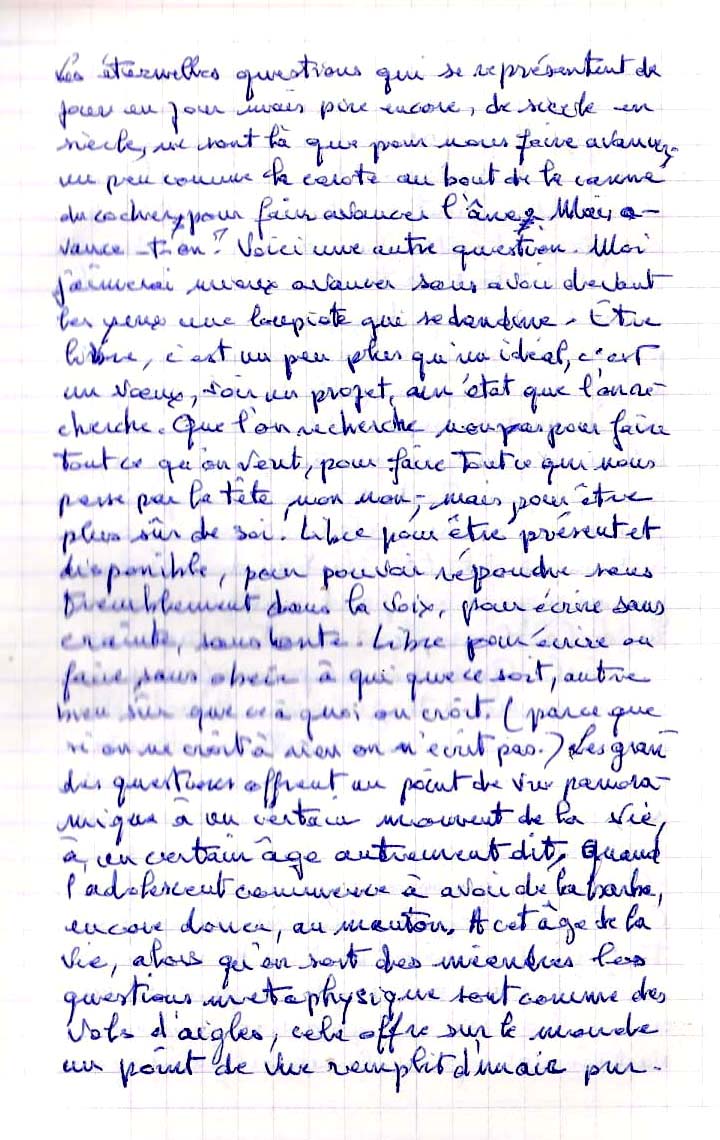 Les éternelles questions qui se représentent de
jour en jour mais pire encore, de siecle en
siècle, ne sont là que pour nous faire avancer,
un peu comme la carote au bout de la canne
du cocher, pour faire avancer l'âne. Mais, a-
vance-t-on? Voici une autre question. Moi
j'aimerai mieux avancer sans avoir devant
les yeux une loupiote qui se dandine. Être
libre, c'est un peu plus qu'un idéal, c'est
un voeux, voir un projet, un état que l'on re-
cherche. Que l'on recherche non pas pour faire
tout ce qu'on veut, pour faire tout ce qui nous
passe par la tête, non non, mais pour être
plus sûr de soi. Libre pour être présent et
disponible, pour pouvoir répondre sans
tremblement dans la voix, pour écrire sans
crainte, sans honte. Libre pour écrire ou
faire, sans obeir à qui que ce soit, autre
bien sûr que ce à quoi on croit. (parce que
si on ne croit à rien on n'écrit pas.) Les gran-
des questions offrent un point de vue panora-
mique à un certain moment de la vie,
à un certain âge autrement dit, Quand
l'adolescent commence à avoir de la barbe,
encore douce, au menton. A cet âge de la
vie, alors qu'on sort des méandres les
questions metaphysique sont comme des
vols d'aigles, cela offre sur le monde
un point de vue remplit d'un air pur.